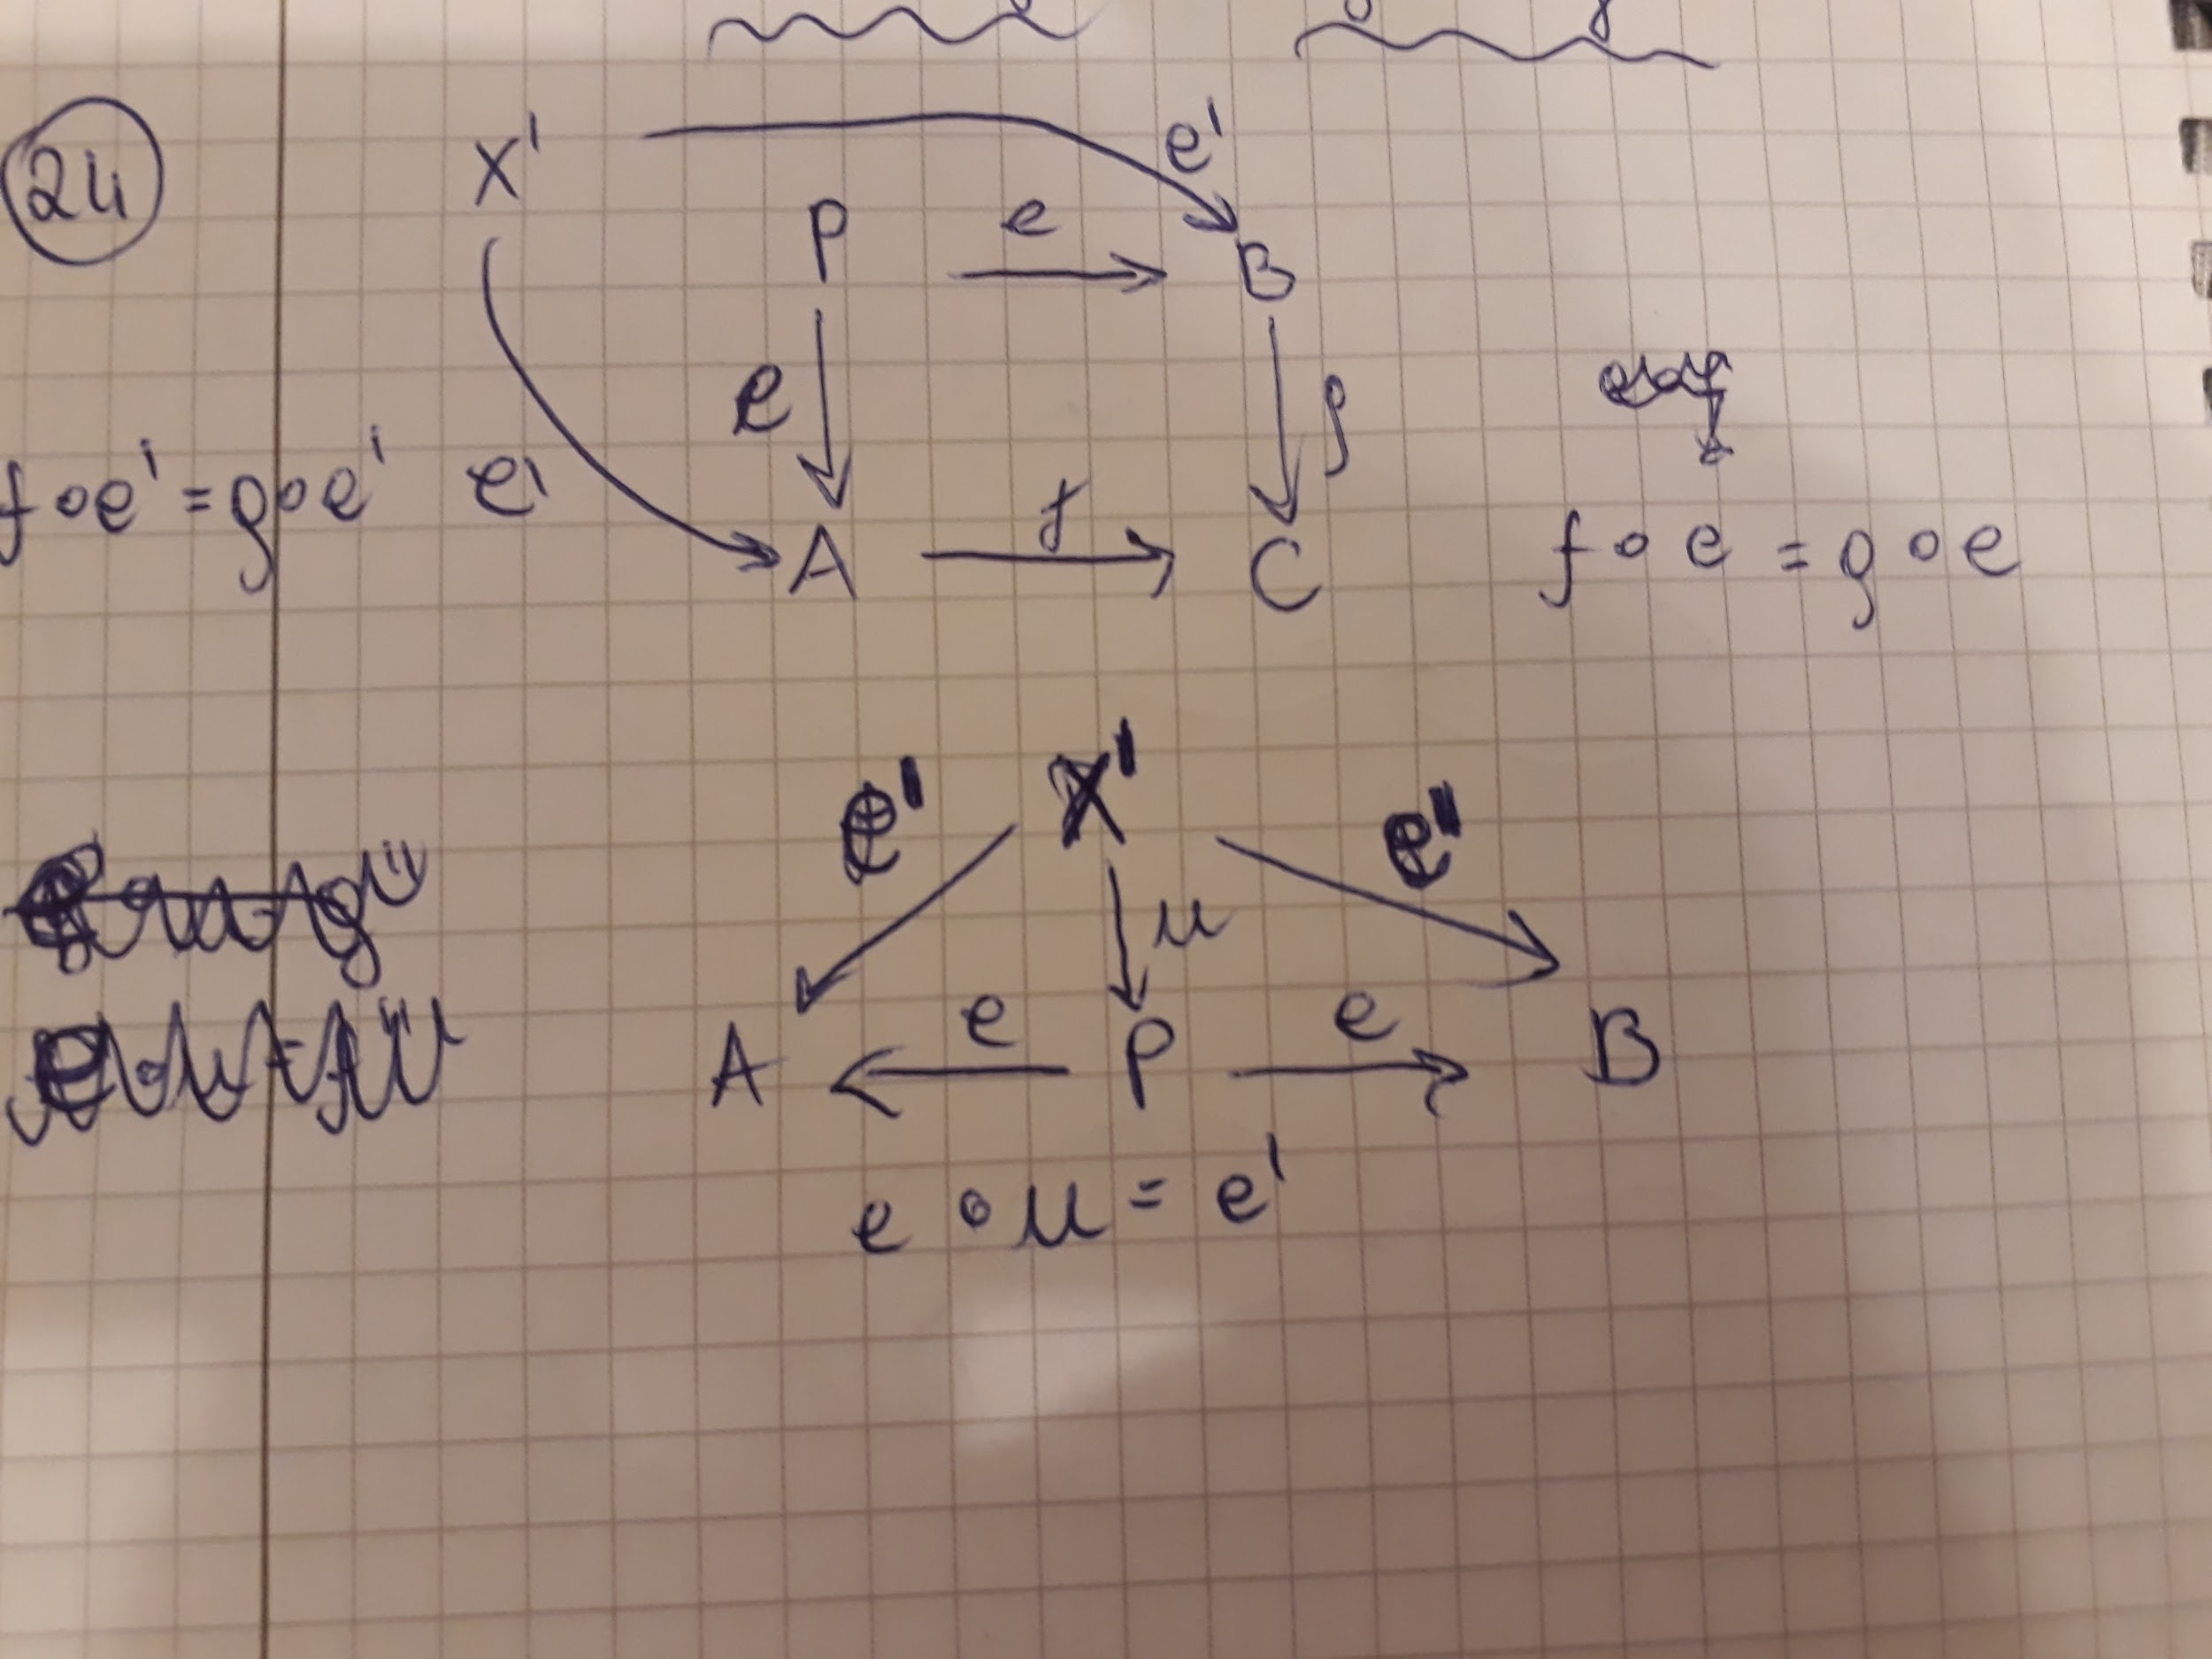 24
X' e'
P e B
e g
f∘e' = g∘e' e'
A f C f∘e = g∘e
e' X' e'
u
e e
A P B
e∘u = e'